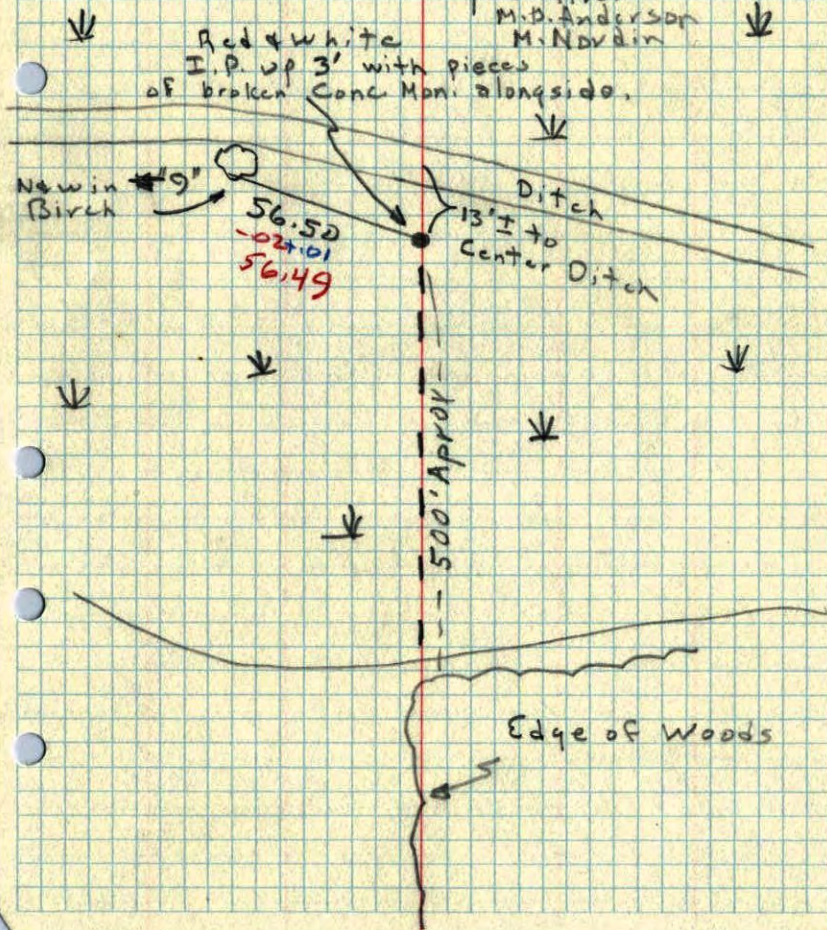 M.D. Anderson
M. Nordin
Red & White
I.P. up 3' with pieces
of broken Conc Mon. alongside.
New in "9"
Birch
56.50
-.02+.01
56.49
Ditch
13' ± to
Center Ditch
500' Aprox
Edge of Woods